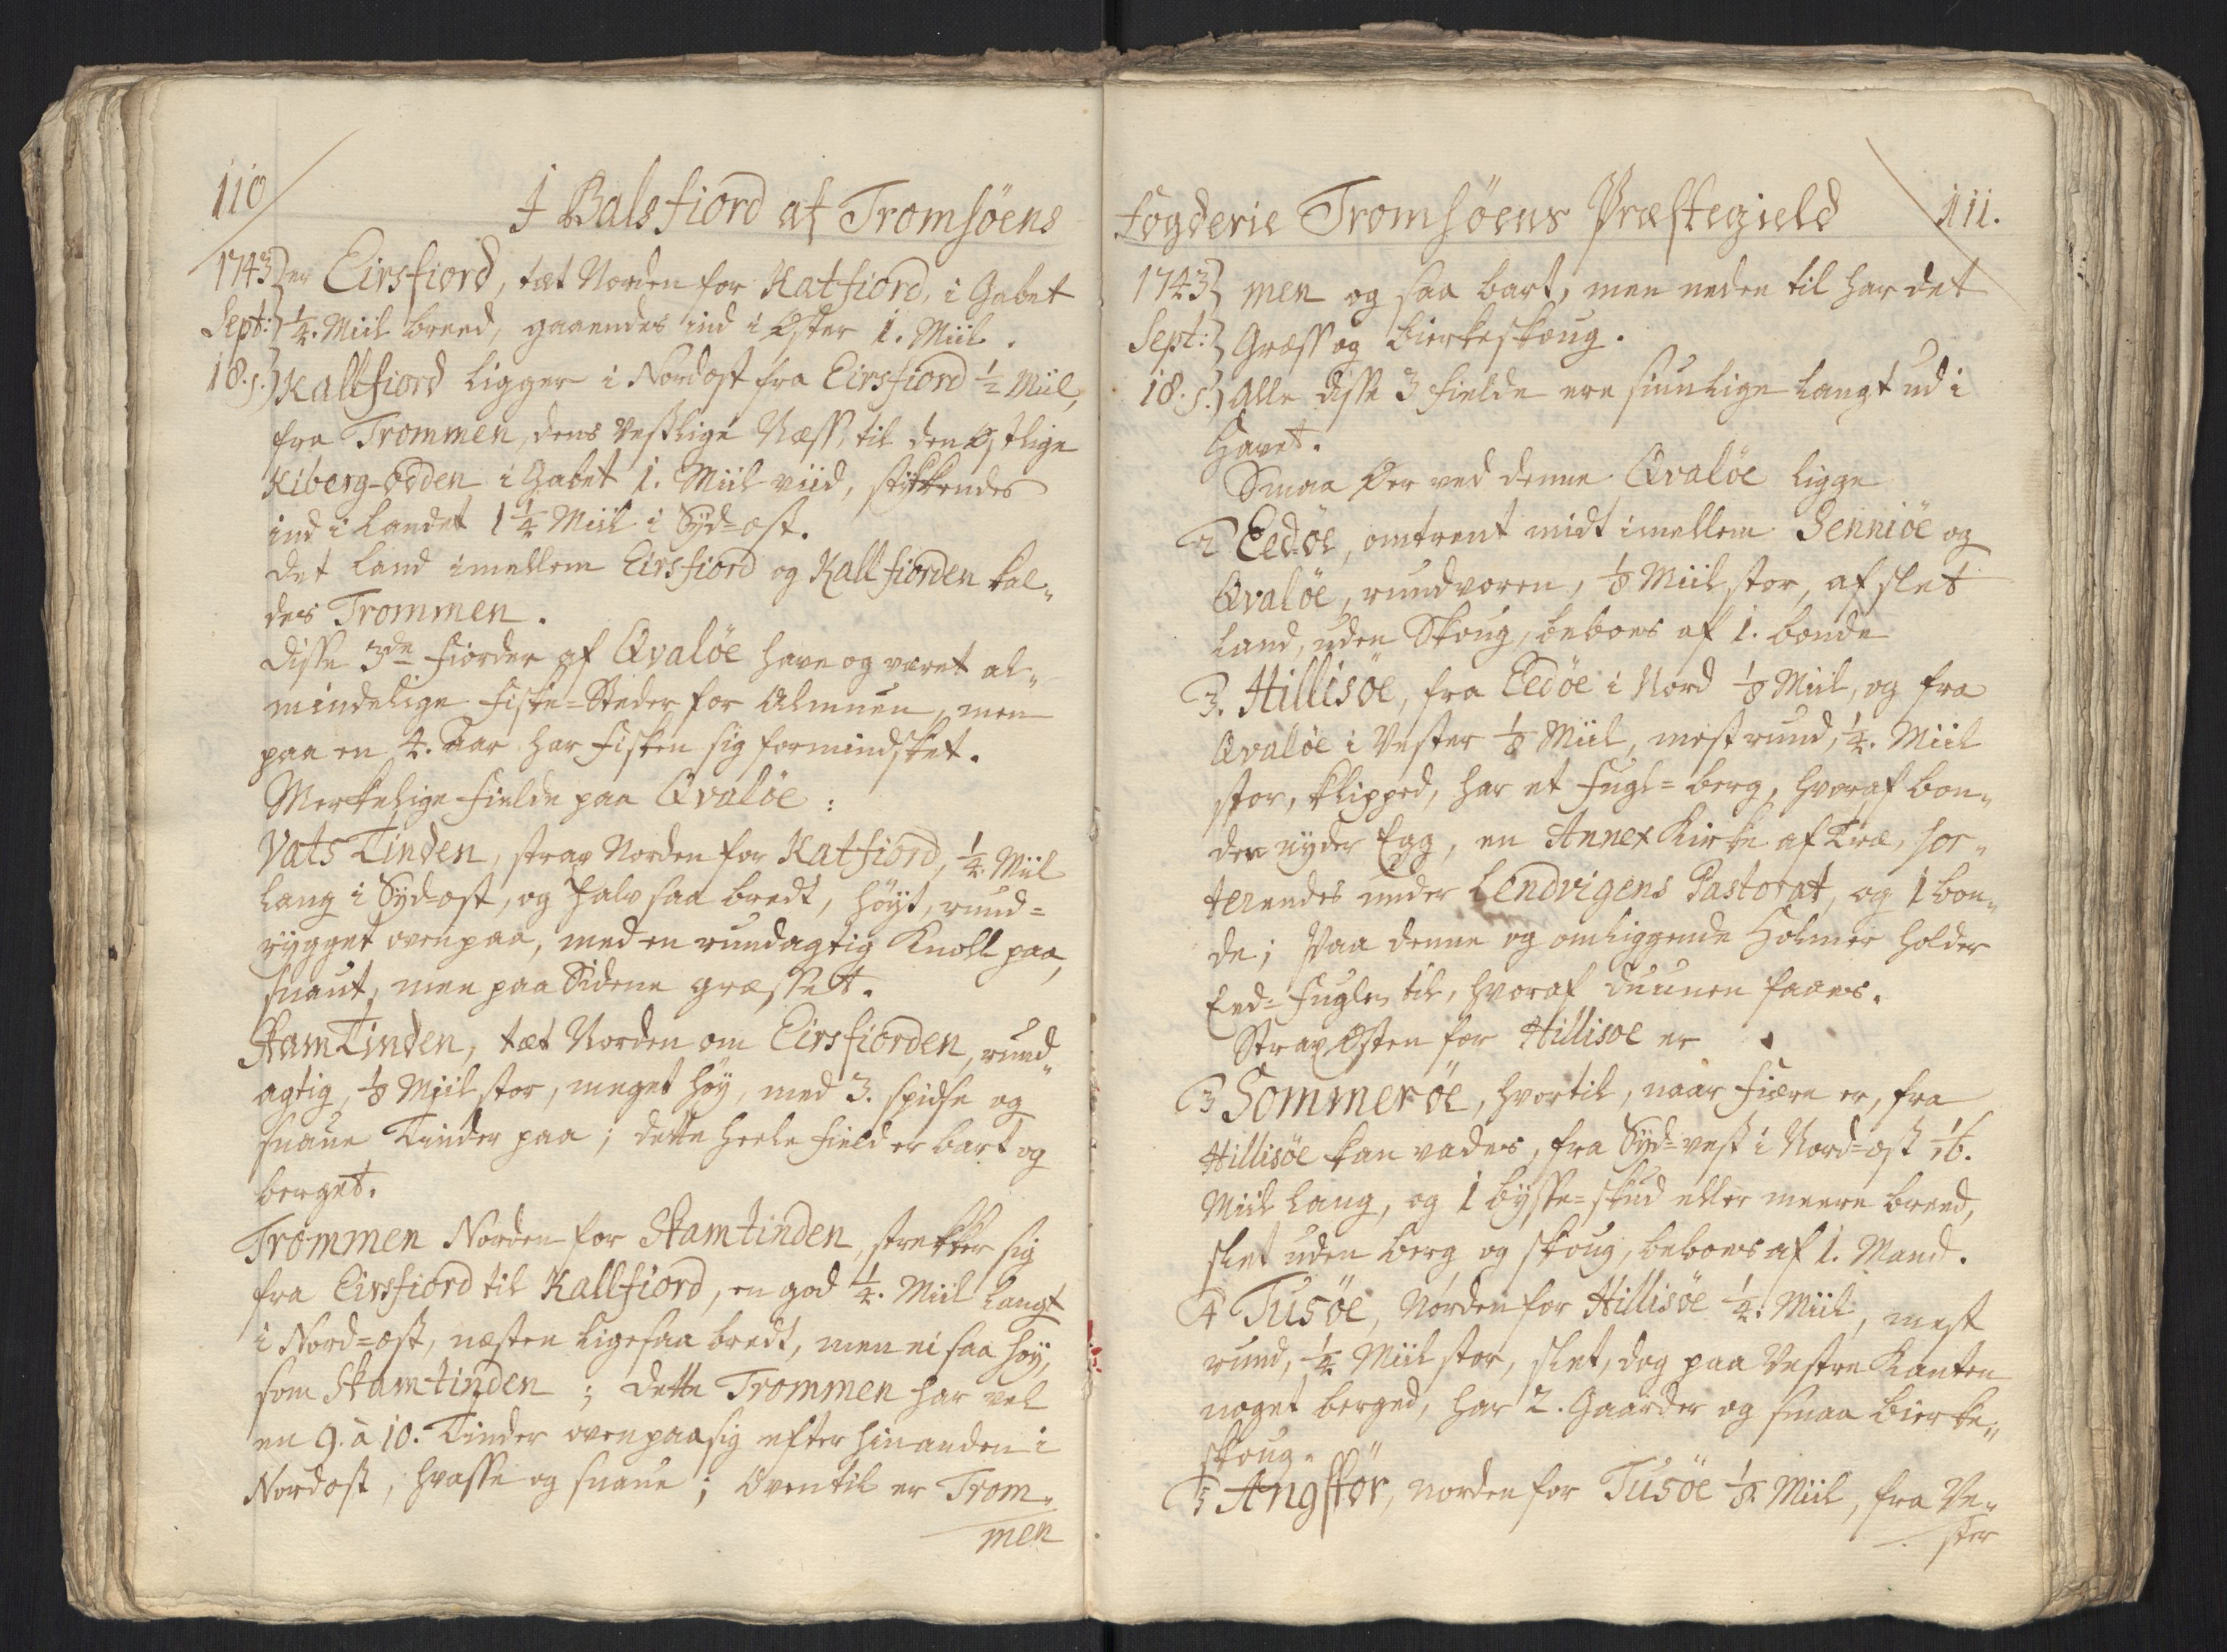 110
I Balsfiord af Tromsöens
1743 er Eirsfiord, tæt Norden for Katfiord, i Gabet
Sept: 1/4. Miil breed, gaaendes ind i Øster 1. Miil.
18. s. Kallfiord ligger i Nordost fra Eirsfiord 1/2 Miil,
fra Trommen, dens vestlige Næss, til den Østlige
Kiberg-odden i Gabet 1. Miil viid, stikkendes
ind i Landet 1 1/4 Miil i Syd-ost.
Det Land imellem Eirsfiord og Kallfiorden kal„
des Trommen.
Disse 3de Fiorder af Qvalöe have og været al„
mindelige Fiske-Steder for Almuen, men
paa en 4. Aar har Fisken sig formindsket.
Merkelige Fielde paa Qvalöe:
Vats Tinden, strax Norden for Katfiord, 1/4. Miil
lang i Sydost, og halv saa bredt, höyt, rund-
rygget ovenpaa, med en rundagtig Knoll paa,
snaut, men paa Sidene græsset.
Skamtinden, tæt Norden om Eirsfiorden, rund„
agtig, 1/8 Miil stor, meget höy, med 3. spidse og
snaue Tinder paa; dette heele Field er bart og
berget.
Trommen Norden for Skamtinden, strekker sig
fra Eirsfiord til Kallfiord, en god 1/4. Miil langt
i Nord-ost, næsten ligesaa bredt, men ei saa höy,
som Skamtinden; dette Trommen har vel
en 9. à 10. Tinder ovenpaa sig efter hinanden i
Nordost, hvasse og snaue; Oventil er Trom„
men
Fogderie Tromsöens Præstegield
111.
1743 men og saa bart, men neden til har det
Sept: Græss og Birkeskoug.
18. s. Alle disse 3 Fielde ere siunlige langt ud i
Havet.
Smaa Øer ved denne Qvalöe ligge
Eedöe, omtrent midt imellem Senniöe og
Qvalöe, rundvoren, 1/8 Miil stor, af slet
Land, uden Skoug, beboes af 1. bonde
Hillisöe, fra Eedöe i Nord 1/8 Miil, og fra
Qvalöe i Vester 1/8 Miil, mest rund, 1/4. Miil
stor, klipped, har et Fugl-berg, hvoraf bon„
den nyder Egg, en Annex Kirke af Træ, sor„
terendes under Lendvigens Pastorat, og 1 bon„
de; Paa denne og omliggende Holmer holder
Eed-Fuglen til, hvoraf Duunen faaes.
Strax Østen for Hillisoe er
3 Sommeröe, hvortil, naar Fiære er, fra
Hillisöe kan vades, fra Syd-vest i Nord-ost 1/16.
Miil lang, og 1 bysse-skud eller meere breed,
slet uden berg og skoug, beboes af 1. Mand.
4 Tusöe, Norden for Hillisöe 1/4. Miil, mest
rund, 1/4 Miil stor, slet, dog paa Vestre Kanten
noget berged, har 2. Gaarder og smaa Bierke„
skoug.
5 Angstör, norden for Tusöe 1/8. Miil, fra Ve„
ster